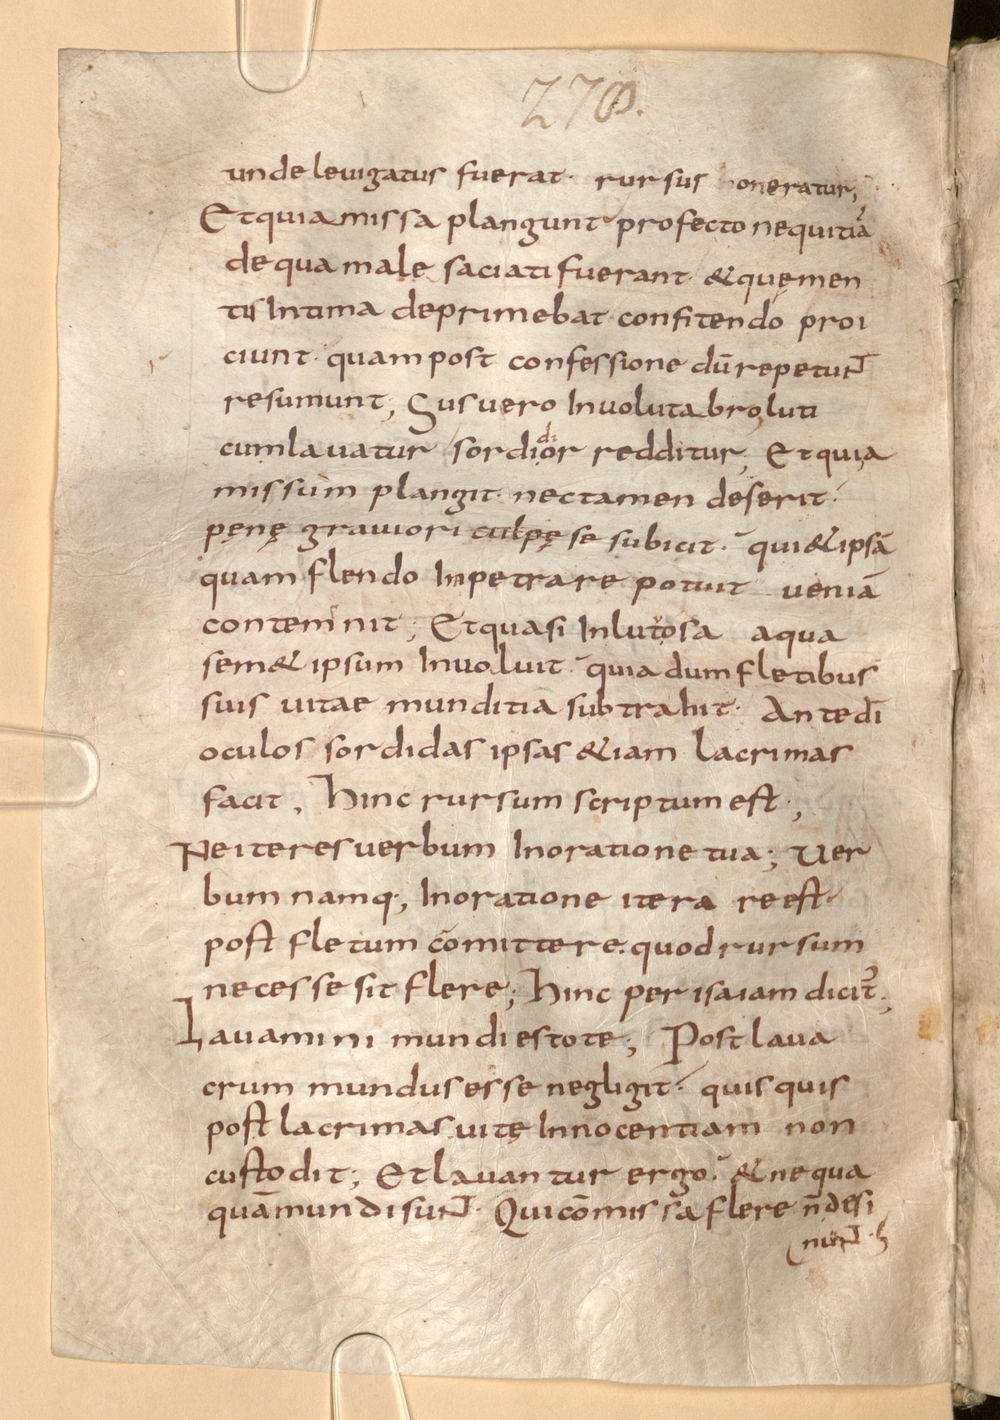 270.
unde leuigatus fuerat· rursus honeratur;
Et quia missa plangunt profecto nequitiā
de qua male saciati fuerant & quę men
tis Intima deprimebat confitendo proi
ciunt· quam post confessione dū repetunt
resumunt; Sus uero Inuoluta broluti
cum lauatur sordidior redditur, Et quia
missum plangit· nec tamen deserit·
pęnę grauiori culpę se subicit· qui & ipsā
quam flendo Inpetrare potuit ueniā
contemnit; Et quasi In lutosa aqua
sem& ipsum Inuoluit· quia dum fletibus
suis uitae munditia subtrahit· Ante dī
oculos sordidas ipsas &iam lacrimas
facit, Hinc rursum scriptum est;
Ne iteres uerbum In oratione tua; Uer
bum namq; In oratione iterare est·
post fletum cōmittere· quod rursum
necesse sit flere; Hinc per isaiam dicit̄;
Lauamini mundi estote; Post laua
crum mundus esse negligit· quisquis
post lacrimas uitę Innocentiam non
custodit; Et lauantur ergo· & nequa
quā mundi sunt· Qui cōmissa flere n̄ desi
nunt· h